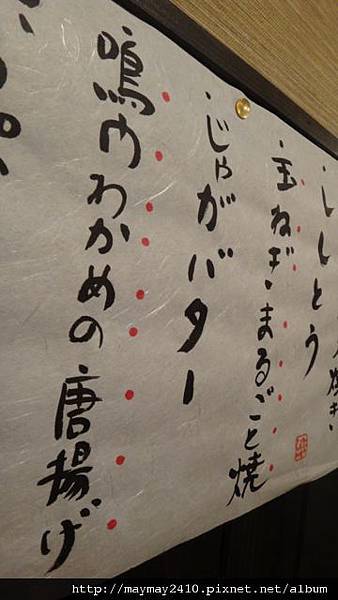 ししとう
玉ねぎまるごと焼
・じゃがバター
鳴門わかめの唐揚げ
http://maymay2410.pixnet.net/album